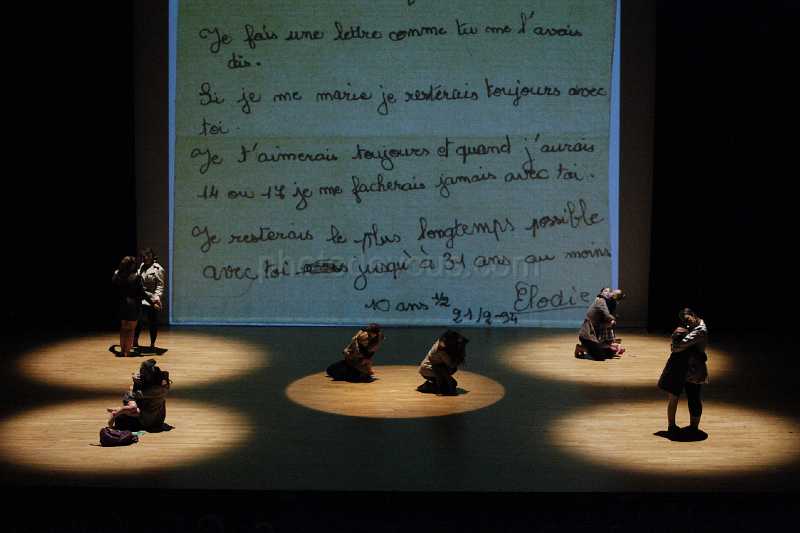 Je fais une lettre comme tu me l'avais
dis.
Si je me marie je resterais toujours avec
toi.
Je t'aimerais toujours et quand j'aurais
14 ou 17 je me facherais jamais avec toi.
Je resterais le plus longtemps possible
avec toi jusqu'à 31 ans au moins
10 ans 1/2 Elodie
21/2-94